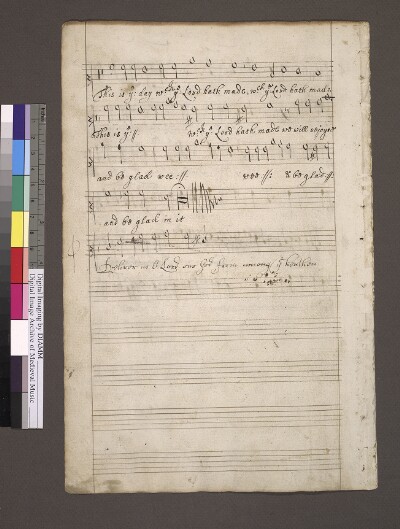 This is yͤ day wͨͪ yͤ Lord hath made, wͨͪ yͤ Lord hath made
This is yͤ :// wͨͪ yͤ Lord hath made we will rejoyce
and be glad wee :// wee :// & be glad ://
and be glad in it
Deliver us O Lord our God from among yͤ heathen
Digital Imaging by DIAMM
Digital Image Archive of Medieval Music